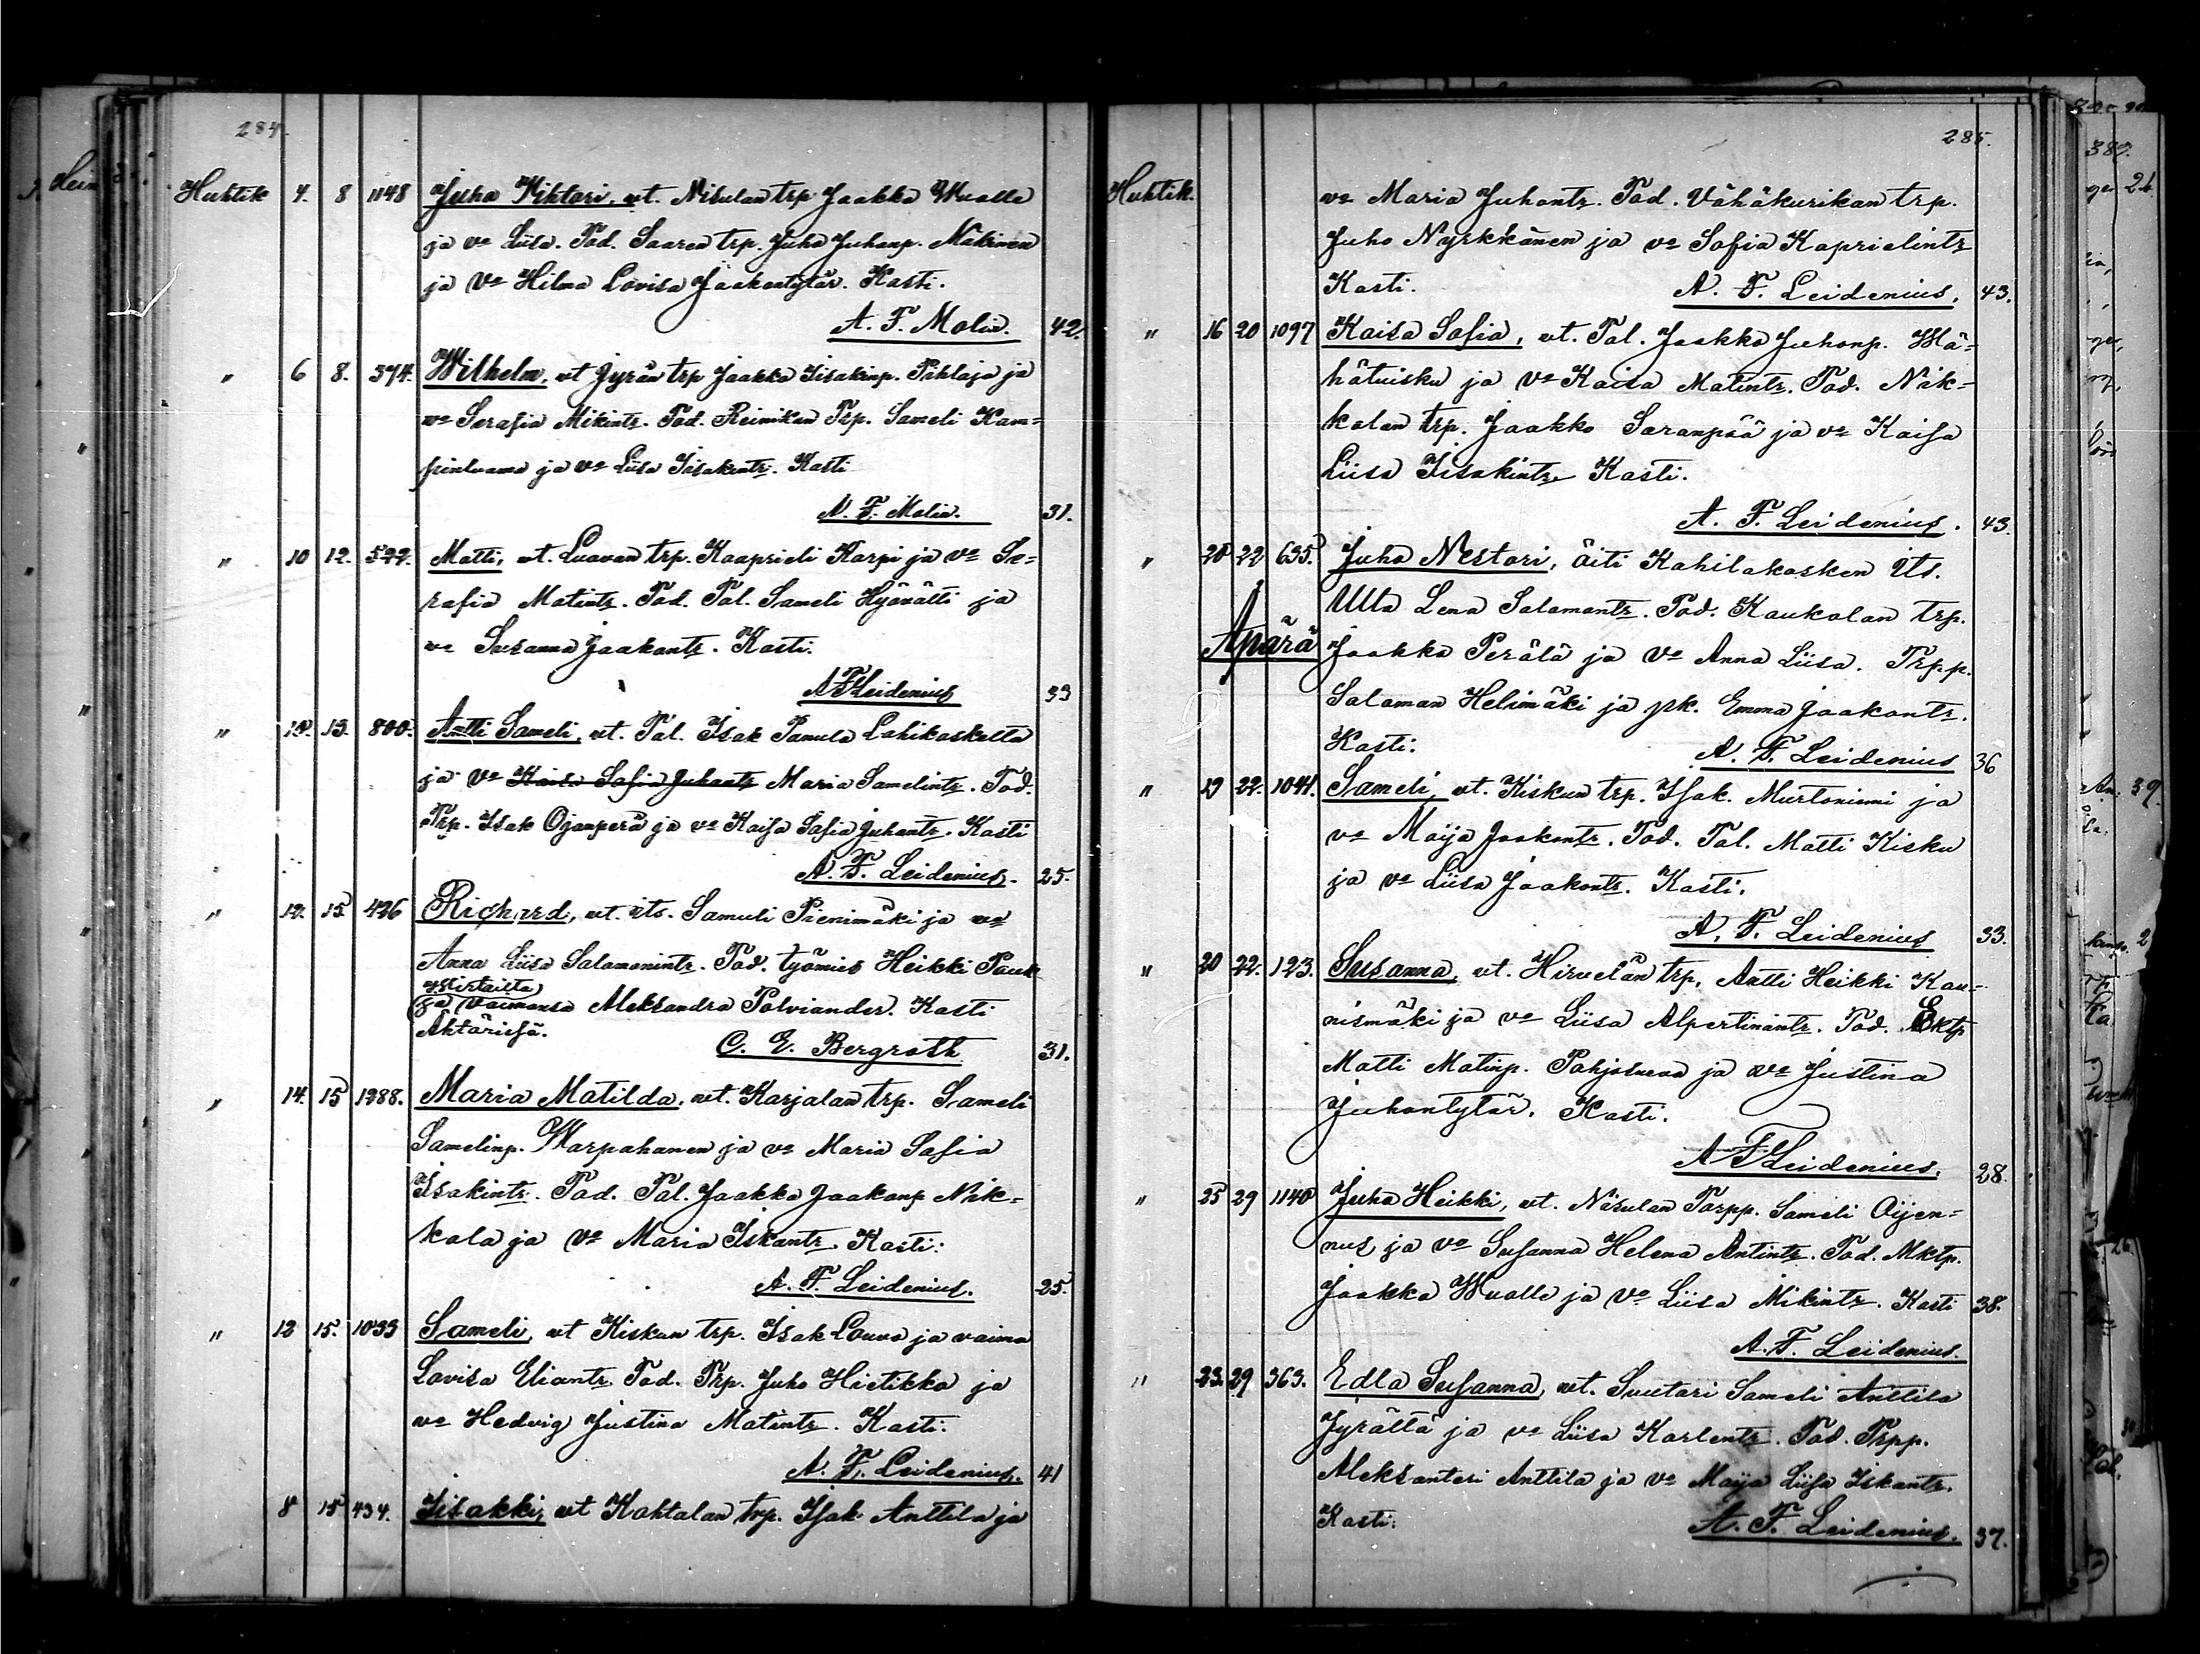 284.
Huhtik 4. 8 1148 Juho Wihtori, vt. Nisulan trp Jaakko Wualle
ja vo Liisa. Tod. Saaren trp. Juho Juhonp. Mäkinen
ja Vo Hilma Lovisa Jaakontytär. Kasti.
A. F. Molin. 42.
" 6 8. 374. Wilhelm, vt Jyrän trp Jaakko Iisakinp. Pihlaja ja
vo Serafia Mikintr. Tod. Reinikan Trp. Sameli Kam=
pinluoma ja vo Liisa Iisakintr. Kasti
A. F. Molin. 31.
" 10 12. 522. Matti, vt. Luovan trp. Kaaprieli Karpi ja vo Se=
rafia Matintr. Tod. Tal. Sameli Hyövälti ja
vo Susanna Jaakontr. Kasti.
A F Leidenius 33
" 12. 13. 800. Antti Sameli, vt. Tal. Isak Pamula Lahikoskelta
ja vo Kaisa Sofia Juhontr Maria Samelintr. Tod.
Trp. Isak Ojanperä ja vo Kaisa Sofia Juhontr. Kasti
A. F. Leidenius. 25.
" 12. 15. 426 Richard, vt. its. Samuli Pienimäki ja vo
Anna Liisa Salomonintr. Tod. työmies Heikki Pauk
Wirtailta
ja vaimonsa Aleksandra Palviander. Kasti
Ähtärissä.
C. E. Bergroth 31.
" 14. 15 1288. Maria Matilda, vt. Karjalan trp. Sameli
Samelinp. Warpahanen ja vo Maria Sofia
Isakintr. Tod. Tal. Jaakko Jaakonp Näk=
kola ja Vo Maria Iskantr. Kasti:
A. F. Leidenius. 25.
" 12 15. 1033 Sameli, vt Kiskun trp. Isak Louvo ja vaimo
Lovisa Eliantr. Tod. Trp. Juho Hietikko ja
vo Hedvig Justina Matintr. Kasti:
A. F. Leidenius. 41
8 15 434. Iisakki, vt Kohtalan trp. Isak Anttila ja
285.
Huhtik. vo Maria Juhontr. Tod. Vähäkurikan trp.
Juho Nyrkkänen ja vo Sofia Kaprielintr
Kasti. A. F. Leidenius. 43.
" 16 20 1097 Kaisa Sofia, vt. Tal. Jaakko Juhonp. Mä=
hätuisku ja Vo Kaisa Matintr. Tod. Näk=
kolan trp. Jaakko Saranpää ja vo Kaisa
Liisa Iisakintr. Kasti.
A. F. Leidenius. 43
" 20 22 635. Juho Nestori, äiti Kahilakosken its.
Ulla Lena Salomontr. Tod. Kaukolan trp.
Äpärä Jaakko Perälä ja Vo Anna Liisa. Trp.p.
Saloman Helimäki ja pk. Emma Jaakontr.
Kasti: A. F. Leidenius 36
" 19 22. 1041. Sameli, vt. Kiskun trp. Isak. Murtoniemi ja
vo Maija Jaakontr. Tod. Tal. Matti Kisku
ja vo Liisa Jaakontr. Kasti.
A. F. Leidenius 33.
" 20 22. 123. Susanna, vt. Hirvelän trp. Antti Heikki Kau=
nismäki ja vo Liisa Alpertinantr. Tod. Lktp
Matti Matinp. Pohjoluoma ja vo Justina
Juhontytär. Kasti.
A F Leidenius. 28.
" 25 29 1140 Juho Heikki, vt. Nisulan Torpp. Sameli Oijen=
nus ja vo Susanna Helena Antintr. Tod. Mktp.
Jaakko Wualle ja Vo Liisa Mikintr. Kasti 38.
A. F. Leidenius.
" 23. 29 363. Edla Susanna, vt. Suutari Sameli Anttila
Jyrältä ja vo Liisa Karlentr. Tod. Trpp.
Aleksanteri Anttila ja vo Maija Liisa Iskantr.
Kasti: A. F. Leidenius. 37.